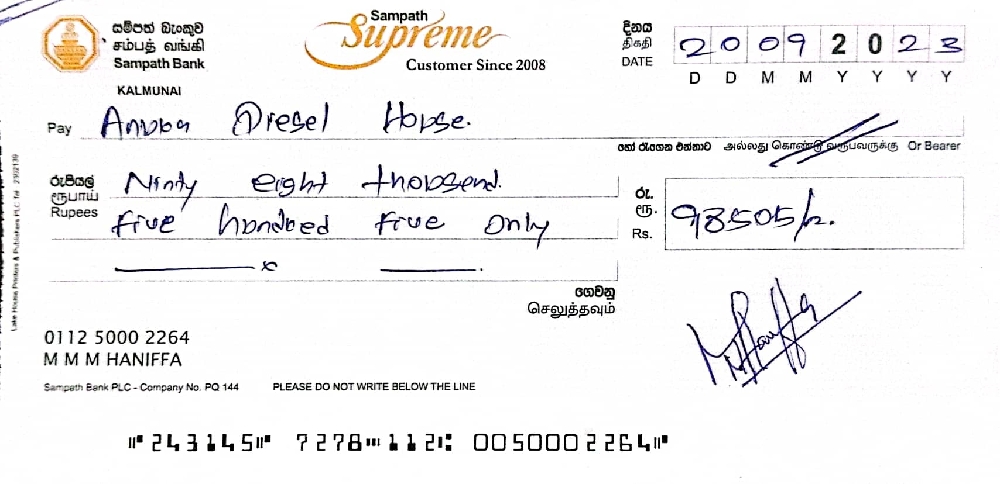 සම්පත් බැංකුව
சம்பத் வங்கி
Sampath Bank
KALMUNAI
Sampath
Supreme
Customer Since 2008
දිනය
திகதி
DATE
2 0 0 9 2 0 2 3
D D M M Y Y Y Y
Pay Anuba Diesel House.
හෝ රැගෙන එන්නාට அல்லது கொண்டு வருபவருக்கு Or Bearer
රුපියල්
ரூபாய்
Rupees
Ninty eight thousend.
five hundred five Only
රු.
ரூ.
Rs.
98505/=.
ගෙවනු
செலுத்தவும்
0112 5000 2264
M M M HANIFFA
Sampath Bank PLC - Company No. PQ 144 PLEASE DO NOT WRITE BELOW THE LINE
⑈243145⑈ 7278⑉112⑆ 0050002264⑈
Lake House Printers & Publishers PLC